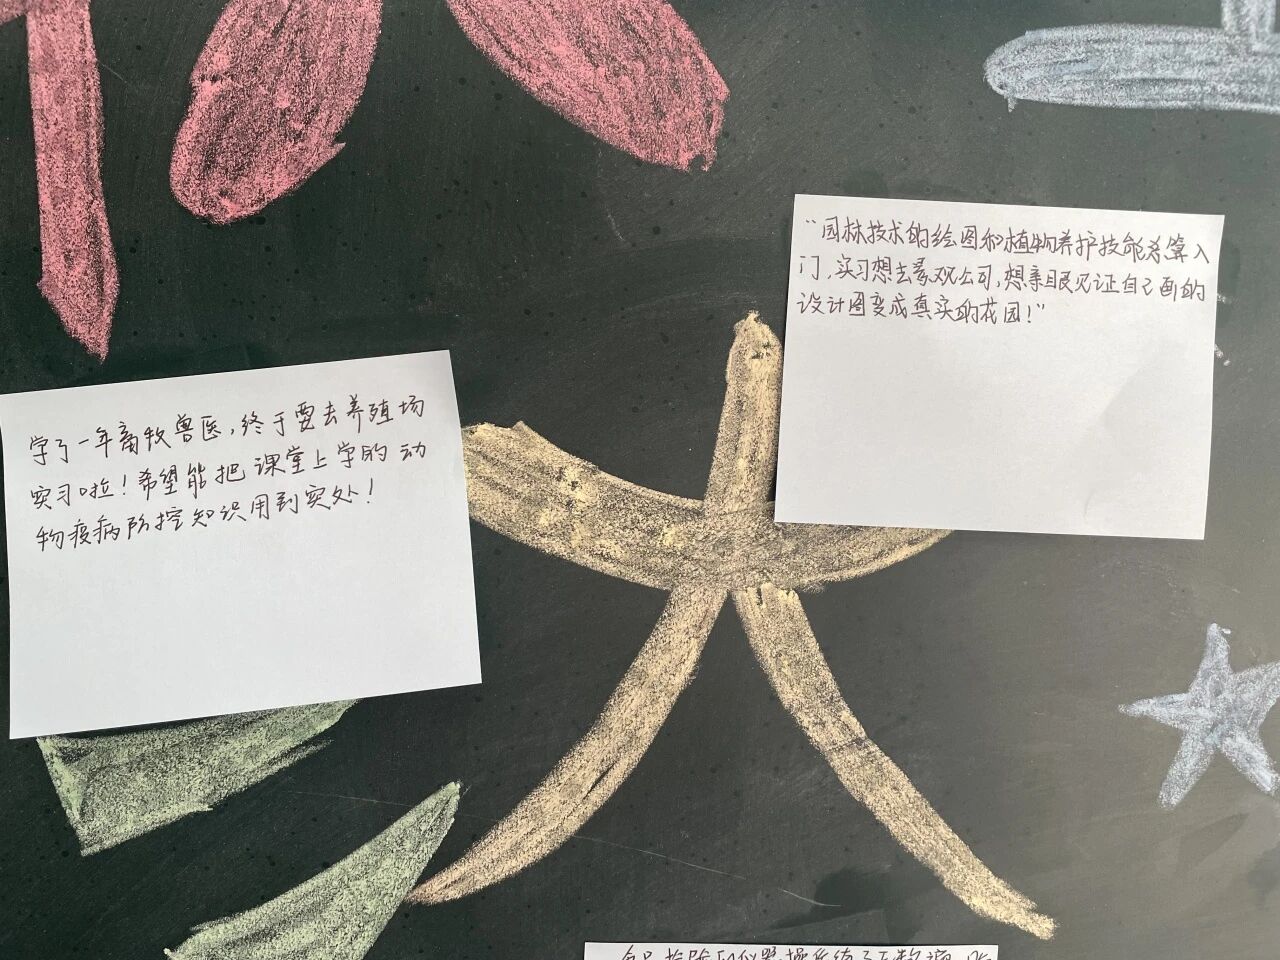 学了一年畜牧兽医，终于要去养殖场
实习啦！希望能把课堂上学的动
物疫病防控知识用到实处！
“园林技术的绘图和植物养护技能才算入
门，实习想去景观公司，想亲眼见证自己画的
设计图变成真实的花园！”
大